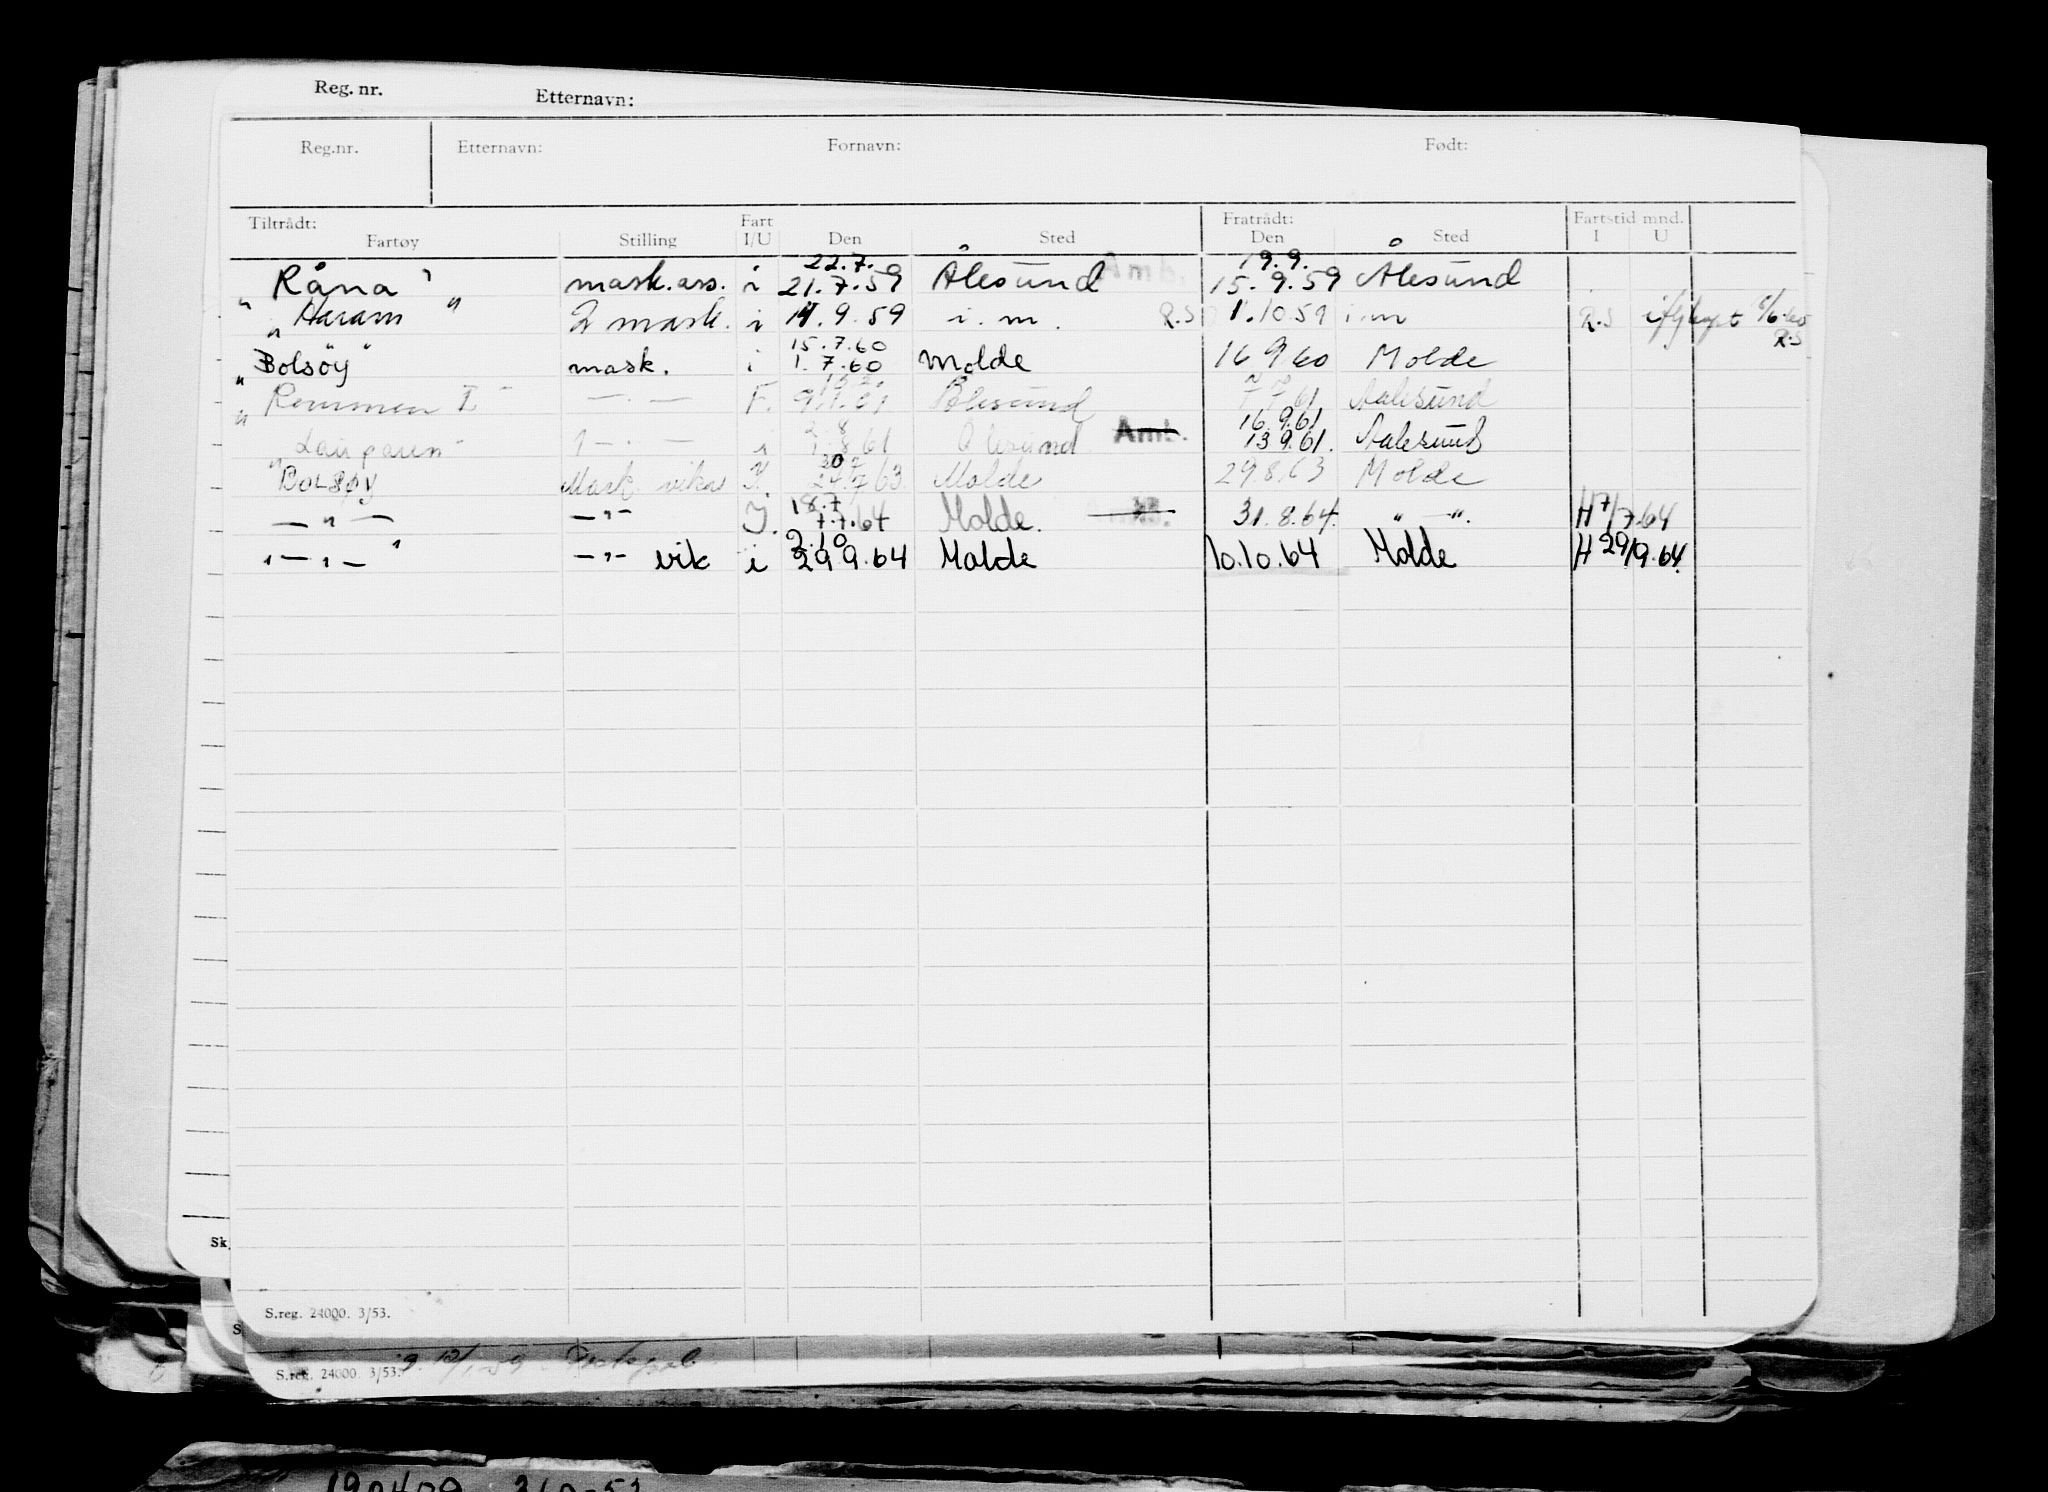 Reg. nr. Etternavn:
Reg.nr. Etternavn: Fornavn: Født:
Tiltrådt: Fart Fratrådt: Fartstid mnd.
Fartøy Stilling I/U Den Sted Den Sted I U
22.7. 19.9.
"Råna" mask.ass. i 21.7.59 Ålesund Amb. 15.9.59 Ålesund
"Haram" 2 mask. i 14.9.59 i.m. R.S 1.10.59 i.m R.S
15.7.60 R.S
"Bolsöy" mask. i 1.7.60 Molde 16 9 60 Molde
"Remmen I" — " — F. Ålesund 7 7 61 Aalesund
2.8 16.9.61
1 — " — i 1.8.61 Ålesund Amb. 13 9.61. Aalesund
30 7
"BOLSØY" Mask vikar Molde 29 8.63 Molde
18.7
— " — — " — J. 7.7.64 Molde. 31.8.64. " — ". H 7/7.64
2.10
" — " — " — " — vik i 29 9.64 Molde 10.10.64 Molde H 29/9.64.
Sk.
S.reg. 24000. 3/53.
S
S.reg. 24000. 3/53.